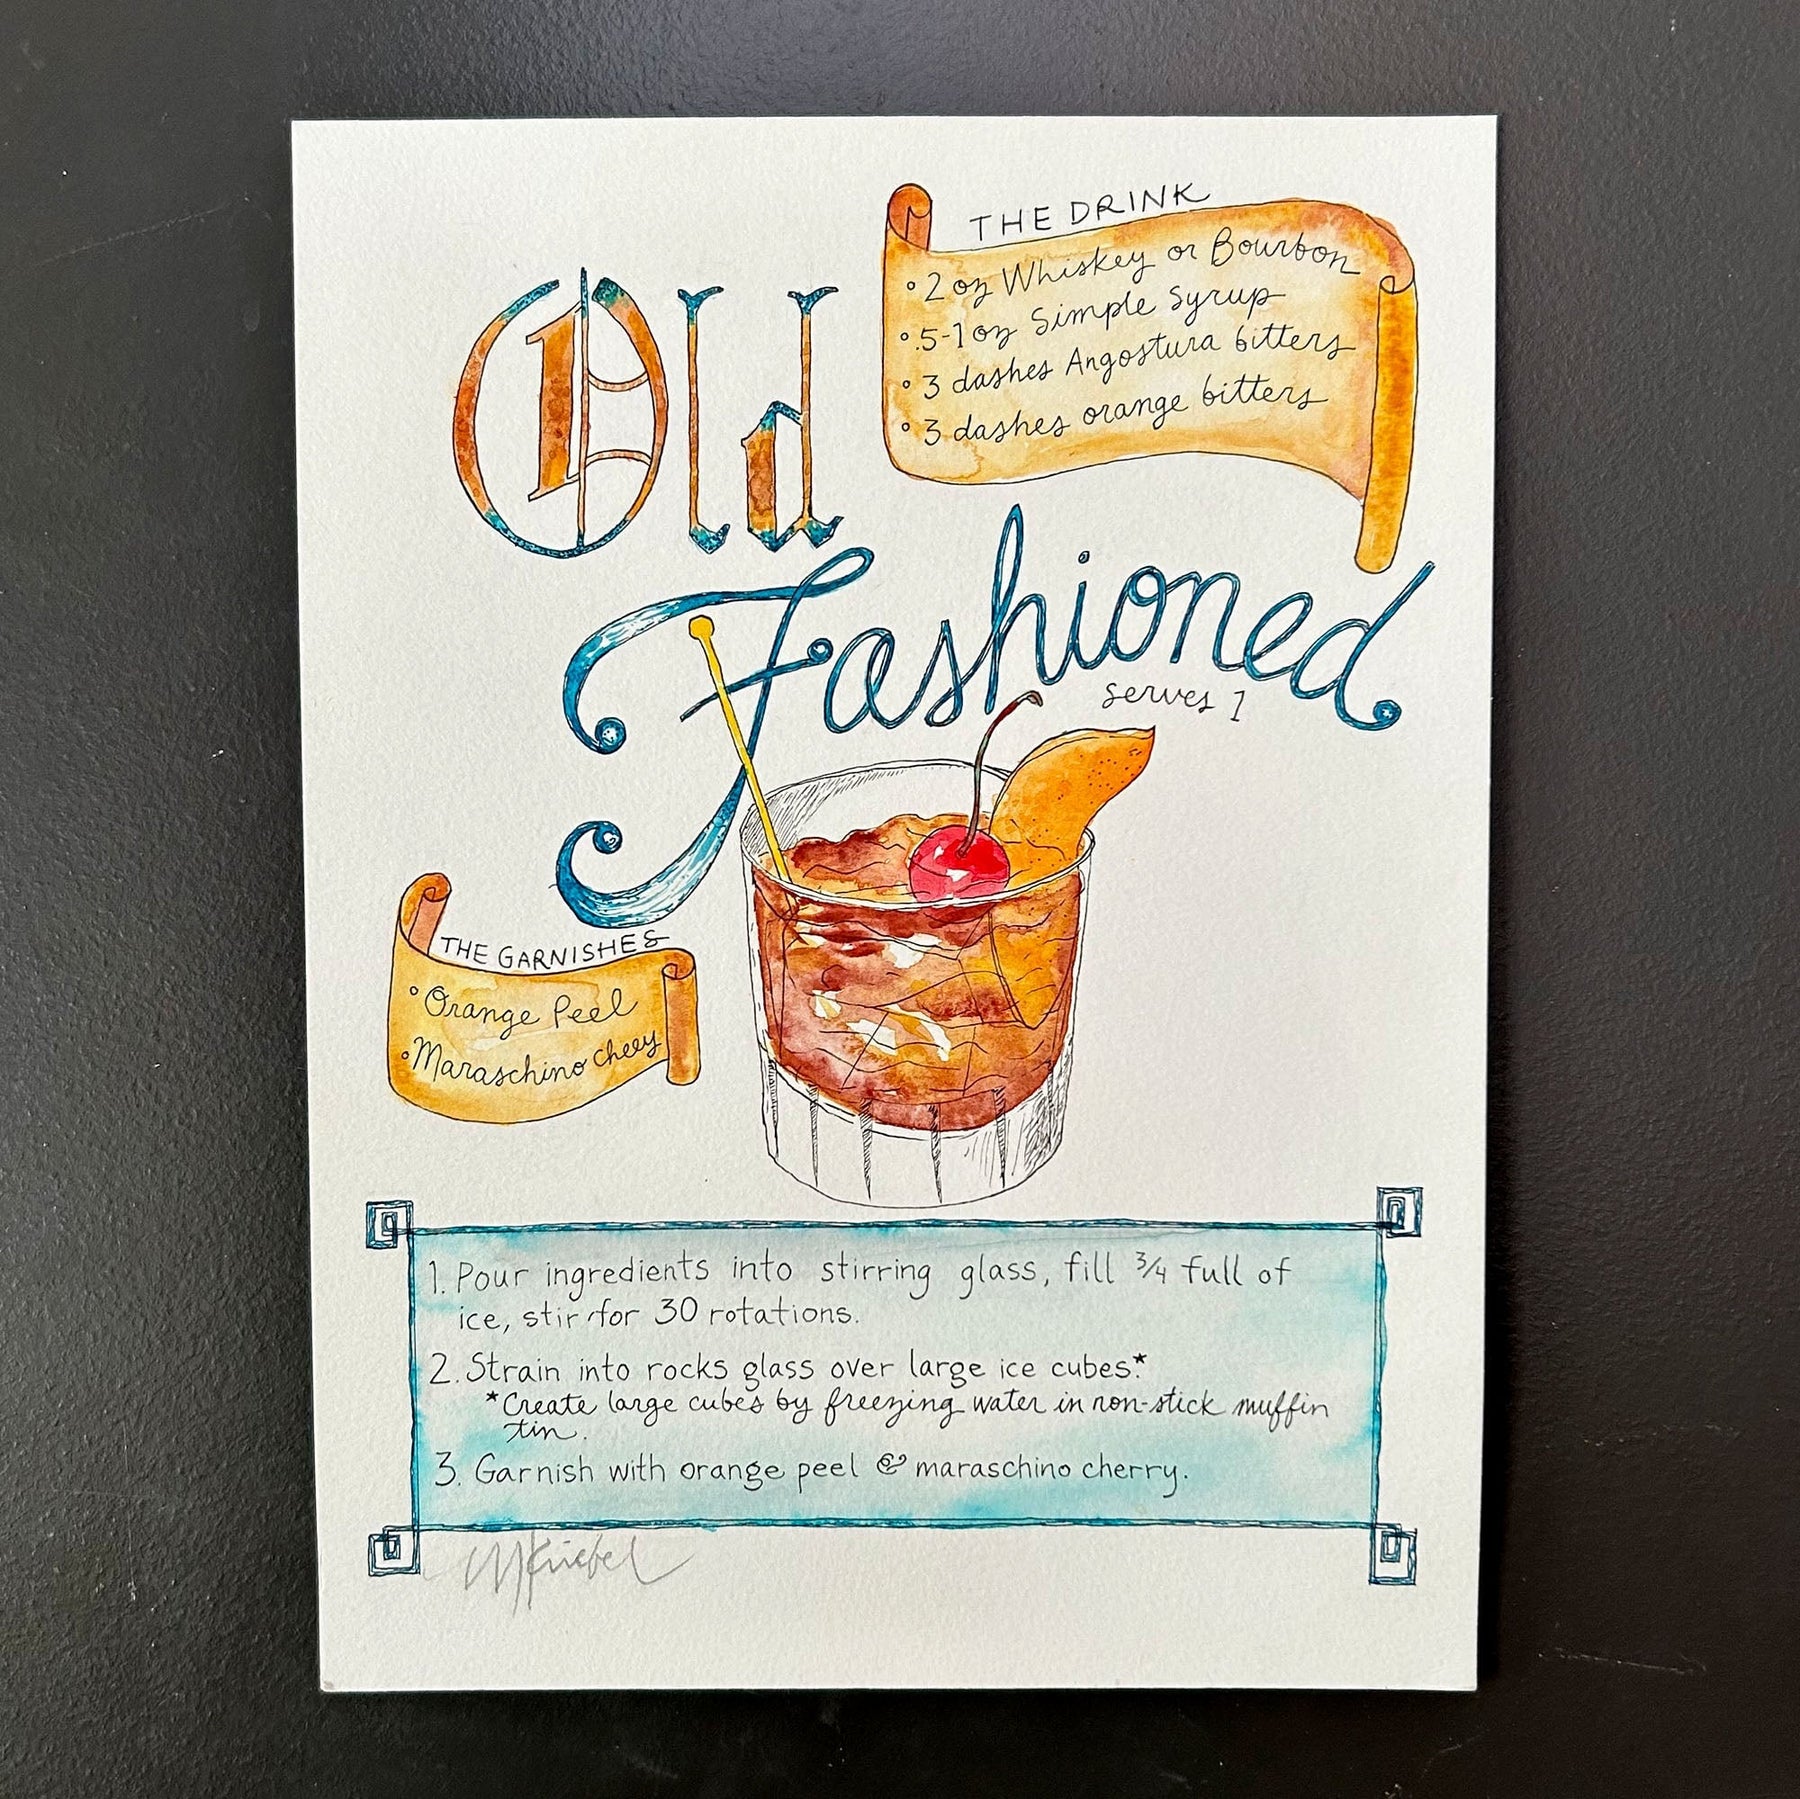 Old
Fashioned
serves 1
THE DRINK
° 2 oz Whiskey or Bourbon
° .5-1 oz Simple Syrup
° 3 dashes Angostura bitters
° 3 dashes orange bitters
THE GARNISHES
° Orange Peel
° Maraschino Cheey
1. Pour ingredients into stirring glass, fill 3/4 full of
ice, stir for 30 rotations.
2. Strain into rocks glass over large ice cubes.*
*Create large cubes by freezing water in non-stick muffin
tin.
3. Garnish with orange peel & maraschino cherry.